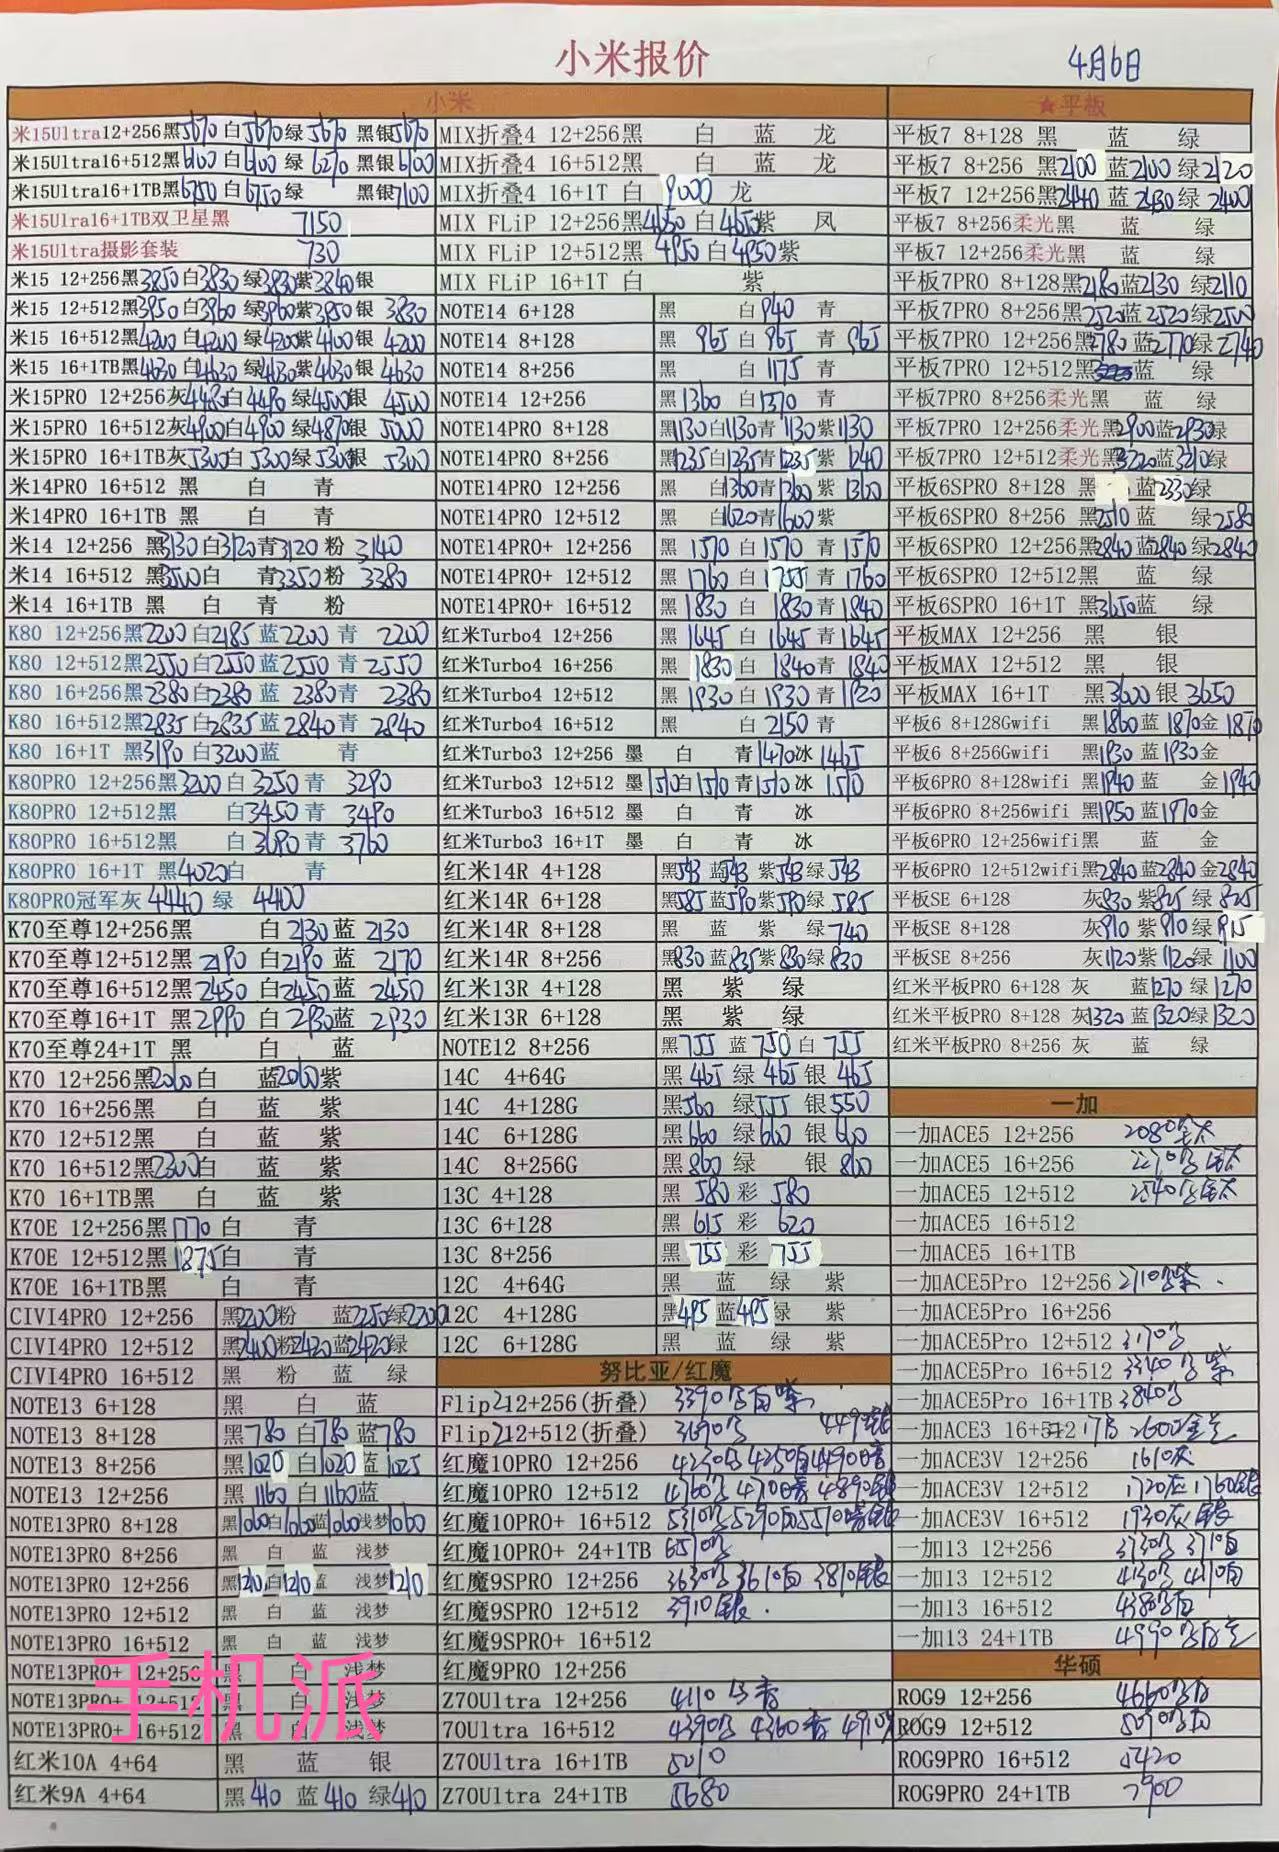 小米报价 4月6日
小米
米15Ultra12+256黑5670 白5670绿 5670 黑银5670
米15Ultra16+512黑6100 白6100 绿 6270 黑银6100
米15Ultra16+1TB黑6750 白6750 绿 黑银7100
米15Ulra16+1TB双卫星黑 7150
米15Ultra摄影套装 730
米15 12+256黑3850白3830 绿3830紫3840银
米15 12+512黑3950白3960 绿3960紫3950银 3830
米15 16+512黑4200 白4200 绿4200紫4100银 4200
米15 16+1TB黑4630 白4630 绿4630紫4630银 4630
米15PRO 12+256灰4480白4490 绿4500银 4500
米15PRO 16+512灰4900白4900 绿4870银 5000
米15PRO 16+1TB灰5300白5300绿5300银 5300
米14PRO 16+512 黑 白 青
米14PRO 16+1TB 黑 白 青
米14 12+256 黑3130白3120青3120 粉 3140
米14 16+512 黑3500白 青3350粉 3380
米14 16+1TB 黑 白 青 粉
K80 12+256黑2200白2185蓝2200 青 2200
K80 12+512黑2550白2550蓝2550 青 2550
K80 16+256黑2380白2380蓝 2380青 2380
K80 16+512黑2835白2835蓝2840青 2840
K80 16+1T 黑3190 白3200蓝 青
K80PRO 12+256黑3200白 3250 青 3290
K80PRO 12+512黑 白3450青 3490
K80PRO 16+512黑 白 3690青 3760
K80PRO 16+1T 黑4020白 青
K80PRO冠军灰 4440 绿 4400
K70至尊12+256黑 白 2130 蓝 2130
K70至尊12+512黑 2190 白2190 蓝 2170
K70至尊16+512黑2450 白2450蓝 2450
K70至尊16+1T 黑2990 白 2930蓝 2930
K70至尊24+1T 黑 白 蓝
K70 12+256黑2060白 蓝2060紫
K70 16+256黑 白 蓝 紫
K70 12+512黑 白 蓝 紫
K70 16+512黑2300白 蓝 紫
K70 16+1TB黑 白 蓝 紫
K70E 12+256黑1770 白 青
K70E 12+512黑1875白 青
K70E 16+1TB黑 白 青
CIVI4PRO 12+256 黑2200粉 蓝2250绿2200
CIVI4PRO 12+512 黑2400粉2420蓝2420绿
CIVI4PRO 16+512 黑 粉 蓝 绿
NOTE13 6+128 黑 白 蓝
NOTE13 8+128 黑780 白780 蓝780
NOTE13 8+256 黑1020 白1020 蓝1025
NOTE13 12+256 黑1160 白1160蓝
NOTE13PRO 8+128 黑1060白1060蓝1060浅梦1060
NOTE13PRO 8+256 黑 白 蓝 浅梦
NOTE13PRO 12+256 黑1210白1210蓝 浅梦1210
NOTE13PRO 12+512 黑 白 蓝 浅梦
NOTE13PRO 16+512 黑 白 蓝 浅梦
NOTE13PRO+ 12+256 黑 白 浅梦
NOTE13PRO+ 12+512 黑 白 浅梦
NOTE13PRO+ 16+512 黑 白 浅梦
红米10A 4+64 黑 蓝 银
红米9A 4+64 黑410 蓝 410 绿410
MIX折叠4 12+256黑 白 蓝 龙
MIX折叠4 16+512黑 白 蓝 龙
MIX折叠4 16+1T 白 9000 龙
MIX FLiP 12+256黑4650白4650紫 凤
MIX FLiP 12+512黑 4950白4950紫
MIX FLiP 16+1T 白 紫
NOTE14 6+128 黑 白940 青
NOTE14 8+128 黑 965 白 965 青 965
NOTE14 8+256 黑 白 1175 青
NOTE14 12+256 黑1360 白1370 青
NOTE14PRO 8+128 黑1130白1130青1130紫1130
NOTE14PRO 8+256 黑1235白1235青1235紫 1240
NOTE14PRO 12+256 黑 白1360青1360紫 1360
NOTE14PRO 12+512 黑 白1620青1600紫
NOTE14PRO+ 12+256 黑 1570 白 1570 青1570
NOTE14PRO+ 12+512 黑 1760 白 1755 青 1760
NOTE14PRO+ 16+512 黑 1830 白 1830青1840
红米Turbo4 12+256 黑 1645 白 1645 青1645
红米Turbo4 16+256 黑 1830 白 1840青1840
红米Turbo4 12+512 黑 1930 白 1930 青 1920
红米Turbo4 16+512 黑 白 2150 青
红米Turbo3 12+256 墨 白 青1470冰 1465
红米Turbo3 12+512 墨1510白1510青1510冰 1510
红米Turbo3 16+512 墨 白 青 冰
红米Turbo3 16+1T 墨 白 青 冰
红米14R 4+128 黑543 蓝543 紫543绿 543
红米14R 6+128 黑585蓝590紫590绿 585
红米14R 8+128 黑 蓝 紫 绿740
红米14R 8+256 黑830 蓝835紫830绿 830
红米13R 4+128 黑 紫 绿
红米13R 6+128 黑 紫 绿
NOTE12 8+256 黑755 蓝 750 白 755
14C 4+64G 黑465 绿 465 银 465
14C 4+128G 黑560 绿555 银550
14C 6+128G 黑660 绿660 银 660
14C 8+256G 黑860 绿 银 860
13C 4+128 黑 580 彩 580
13C 6+128 黑 615 彩 620
13C 8+256 黑 755 彩 755
12C 4+64G 黑 蓝 绿 紫
12C 4+128G 黑495 蓝495绿 紫
12C 6+128G 黑 蓝 绿 紫
努比亚/红魔
Flip212+256(折叠) 3390
Flip212+512(折叠) 3690
红魔10PRO 12+256
红魔10PRO 12+512
红魔10PRO+ 16+512
红魔10PRO+ 24+1TB 6510
红魔9SPRO 12+256
红魔9SPRO 12+512 3910银
红魔9SPRO+ 16+512
红魔9PRO 12+256
Z70Ultra 12+256 4110
70Ultra 16+512 4390
Z70Ultra 16+1TB 5010
Z70Ultra 24+1TB 5680
★平板
平板7 8+128 黑 蓝 绿
平板7 8+256 黑2100 蓝2100 绿2120
平板7 12+256黑2440 蓝2430 绿2400
平板7 8+256柔光黑 蓝 绿
平板7 12+256柔光黑 蓝 绿
平板7PRO 8+128黑2180蓝2130 绿2110
平板7PRO 8+256黑2520蓝 2520绿2500
平板7PRO 12+256黑2780 蓝2770绿2740
平板7PRO 12+512黑 蓝 绿
平板7PRO 8+256柔光黑 蓝 绿
平板7PRO 12+256柔光黑2900蓝2930绿
平板7PRO 12+512柔光黑3220蓝3210绿
平板6SPRO 8+128 黑 蓝2330绿
平板6SPRO 8+256 黑2510 蓝 绿2580
平板6SPRO 12+256黑2840 蓝2840绿2840
平板6SPRO 12+512黑 蓝 绿
平板6SPRO 16+1T 黑3650蓝 绿
平板MAX 12+256 黑 银
平板MAX 12+512 黑 银
平板MAX 16+1T 黑3600 银 3650
平板6 8+128Gwifi 黑1860 蓝 1870金 1870
平板6 8+256Gwifi 黑1930 蓝1930金
平板6PRO 8+128wifi 黑1940 蓝 金1940
平板6PRO 8+256wifi 黑1950 蓝1970金
平板6PRO 12+256wifi黑 蓝 金
平板6PRO 12+512wifi黑2840 蓝2840 金2840
平板SE 6+128 灰830 紫825 绿 825
平板SE 8+128 灰910 紫910 绿915
平板SE 8+256 灰1120紫1120绿 1100
红米平板PRO 6+128 灰 蓝1270 绿1270
红米平板PRO 8+128 灰1320 蓝1320绿1320
红米平板PRO 8+256 灰 蓝 绿
一加
一加ACE5 12+256 2080
一加ACE5 16+256
一加ACE5 12+512 2540
一加ACE5 16+512
一加ACE5 16+1TB
一加ACE5Pro 12+256 2710
一加ACE5Pro 16+256
一加ACE5Pro 12+512 3170
一加ACE5Pro 16+512 3340
一加ACE5Pro 16+1TB 3840
一加ACE3 16+512 1TB 2600
一加ACE3V 12+256 1610灰
一加ACE3V 12+512 1720灰 1760银
一加ACE3V 16+512 1930灰 银
一加13 12+256
一加13 12+512
一加13 16+512 4380
一加13 24+1TB 4990
华硕
ROG9 12+256 4660
ROG9 12+512 5090
ROG9PRO 16+512 5420
ROG9PRO 24+1TB 7900
手机派